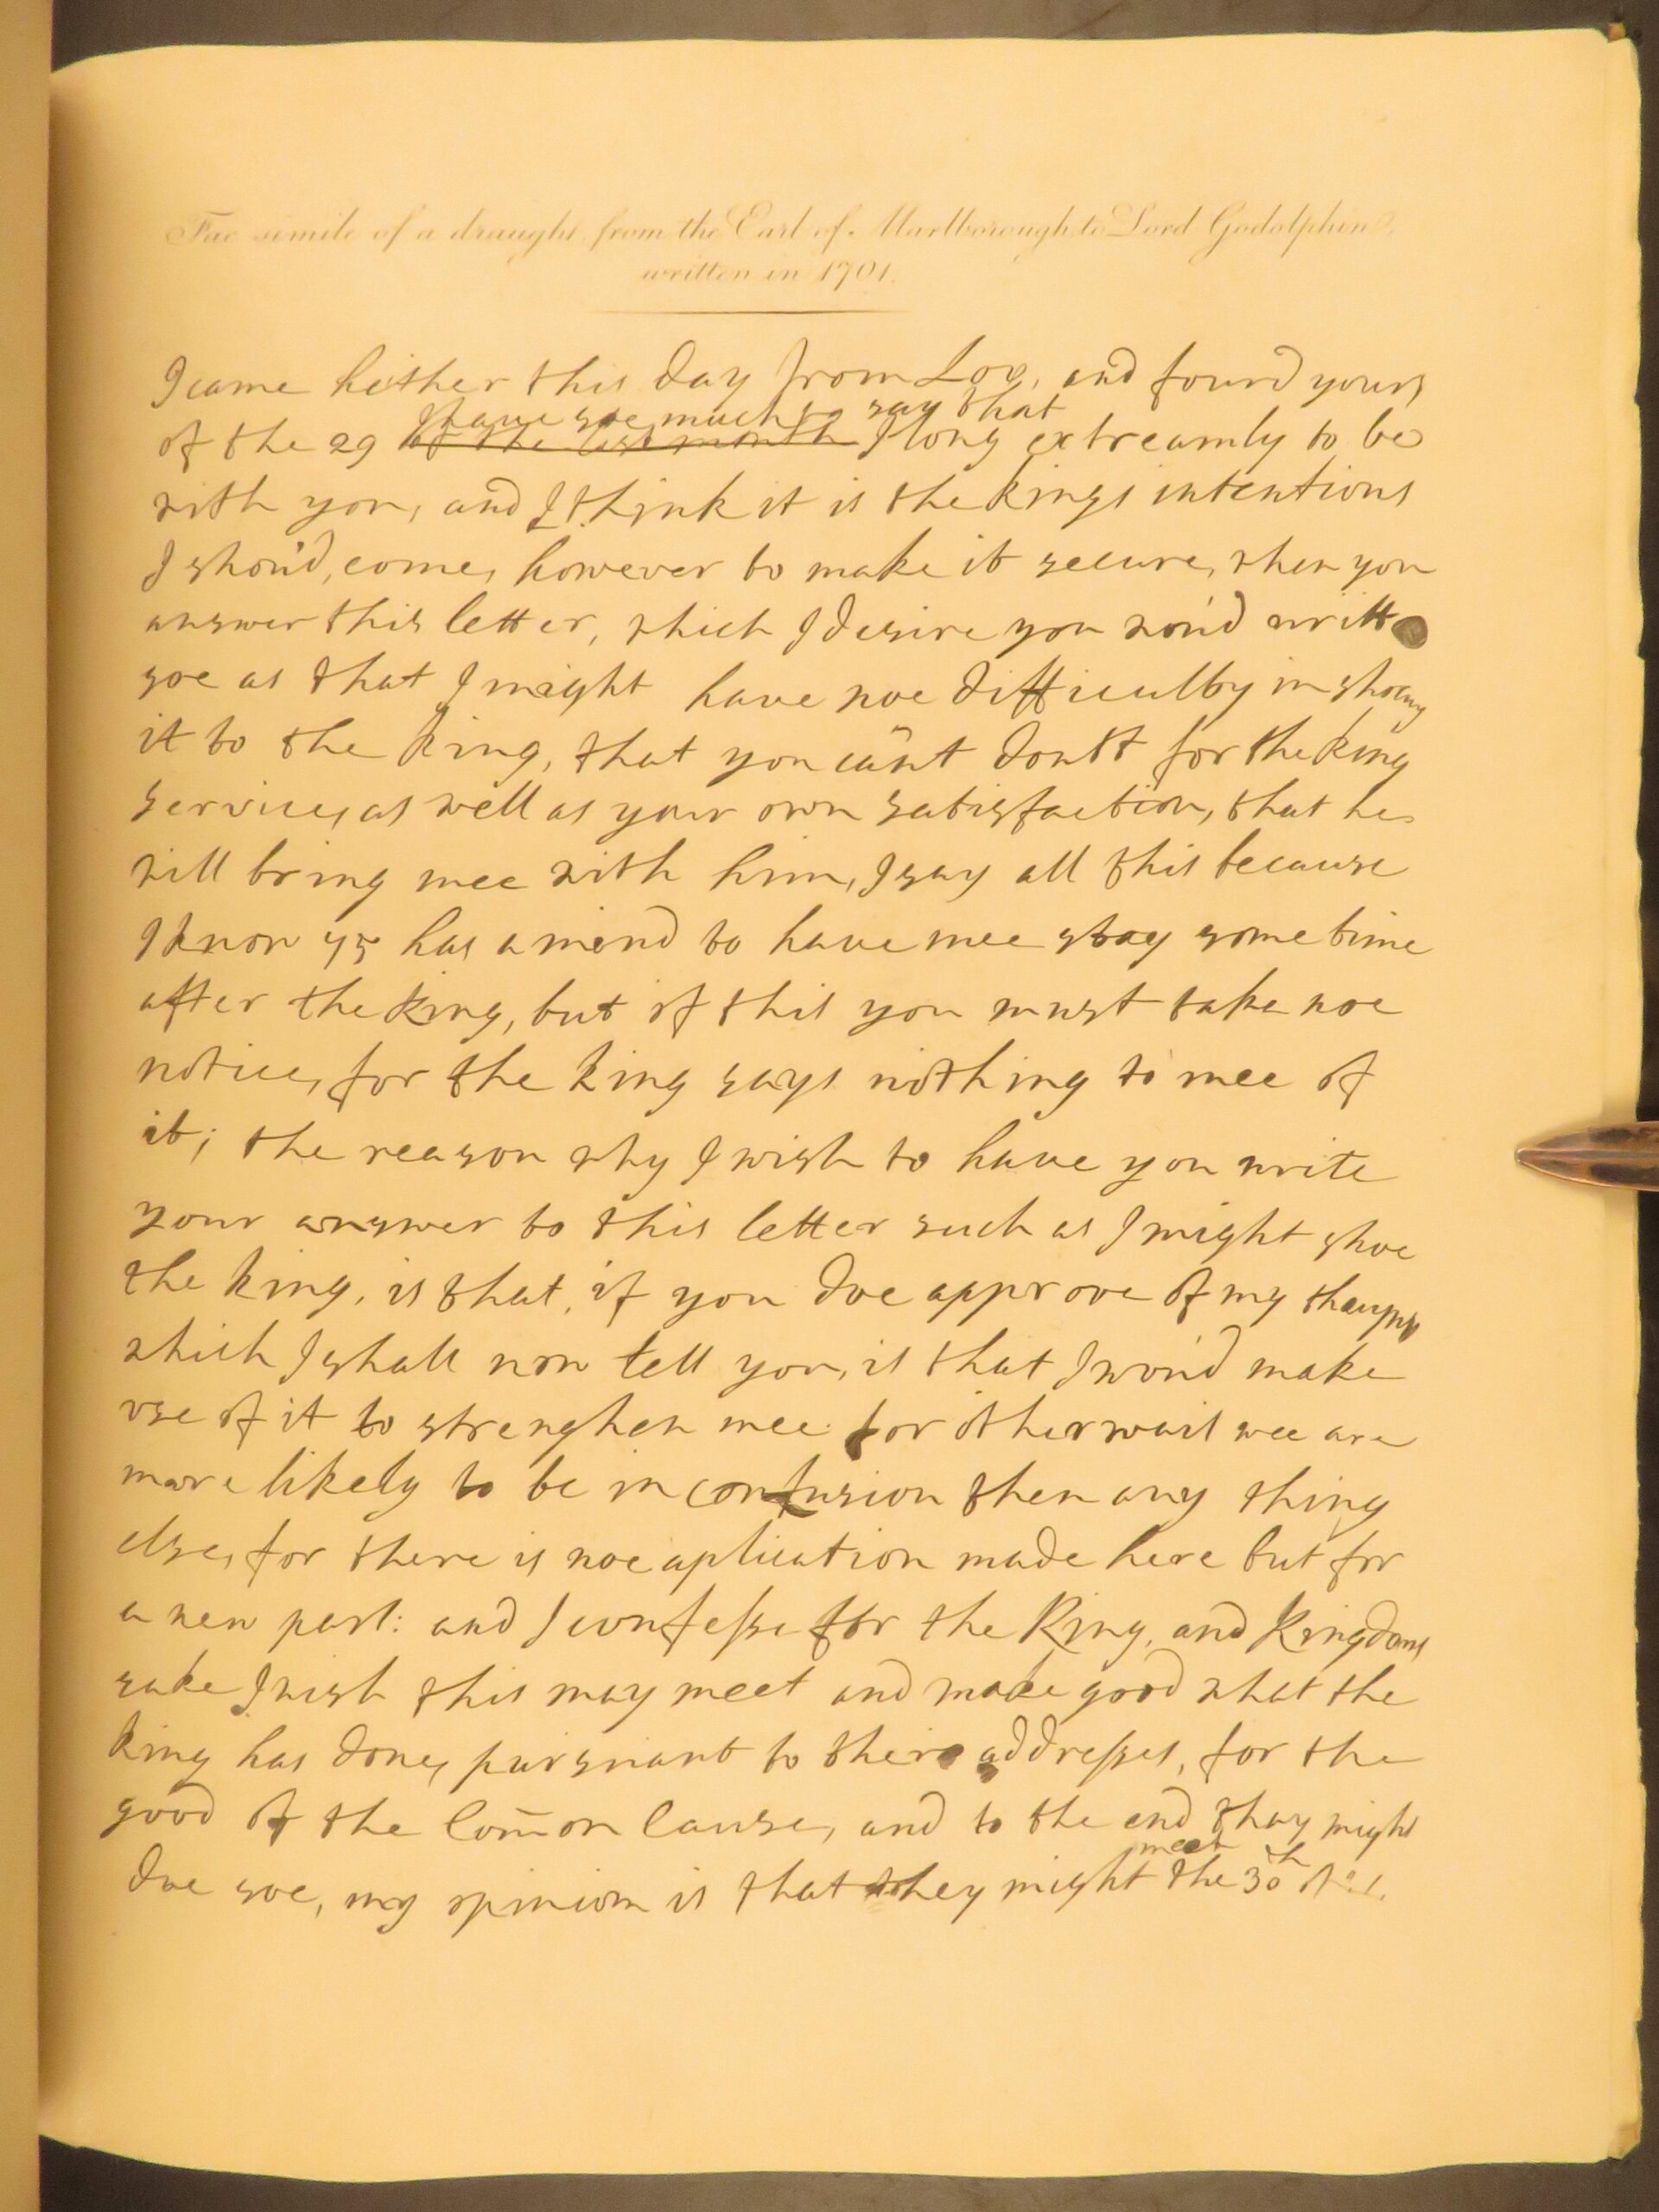 Fac simile of a draught, from the Earl of Marlborough to Lord Godolphin,
written in 1701.
I came hether this day from Loo, and found yours
I have soe much to say that
of the 29 of the last month I long extreamly to be
with you, and I think it is the kings intentions
I shou'd, come, however to make it secure, when you
answer this letter, which I desire you wou'd writt
soe as that I might have noe difficulty in showing
it to the king, that you can't doubt for the king
services, as well as your own satisfaction, that he
will bring mee with him, I say all this because
I know 45 has a mind to have mee stay some time
after the king, but of this you must take noe
notice, for the king says nothing to mee of
it; the reason why I wish to have you write
your answer to this letter such as I might shoe
the king, is that, if you doe approve of my
which I shall now tell you, is that I wou'd make
use of it to strenghen mee for otherwais wee are
more likely to be in confusion then any thing
else, for there is noe aplication made here but for
a new parl: and I confesse for the King, and Kingdoms
sake I wish this may meet and make good what the
king has done, pursuant to there addresses, for the
good of the Com̄on Cause, and to the end thay might
meet
doe soe, my opinion is that they might the 30th of